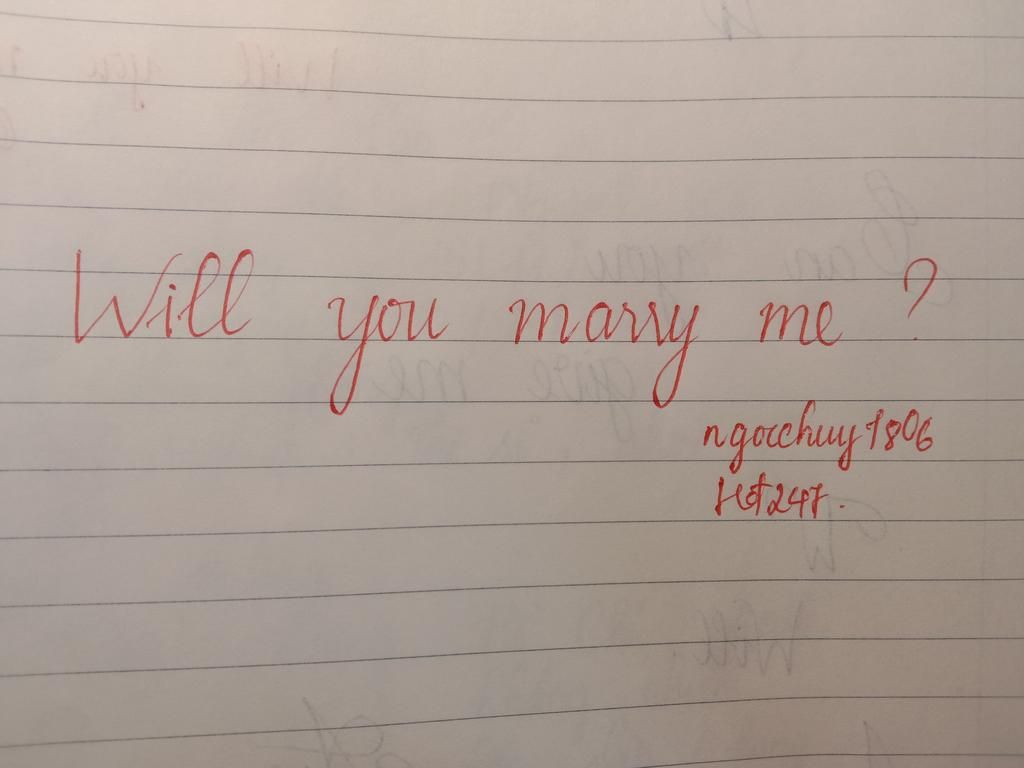 Will you marry me ?
ngocchuy1806
Hot247.